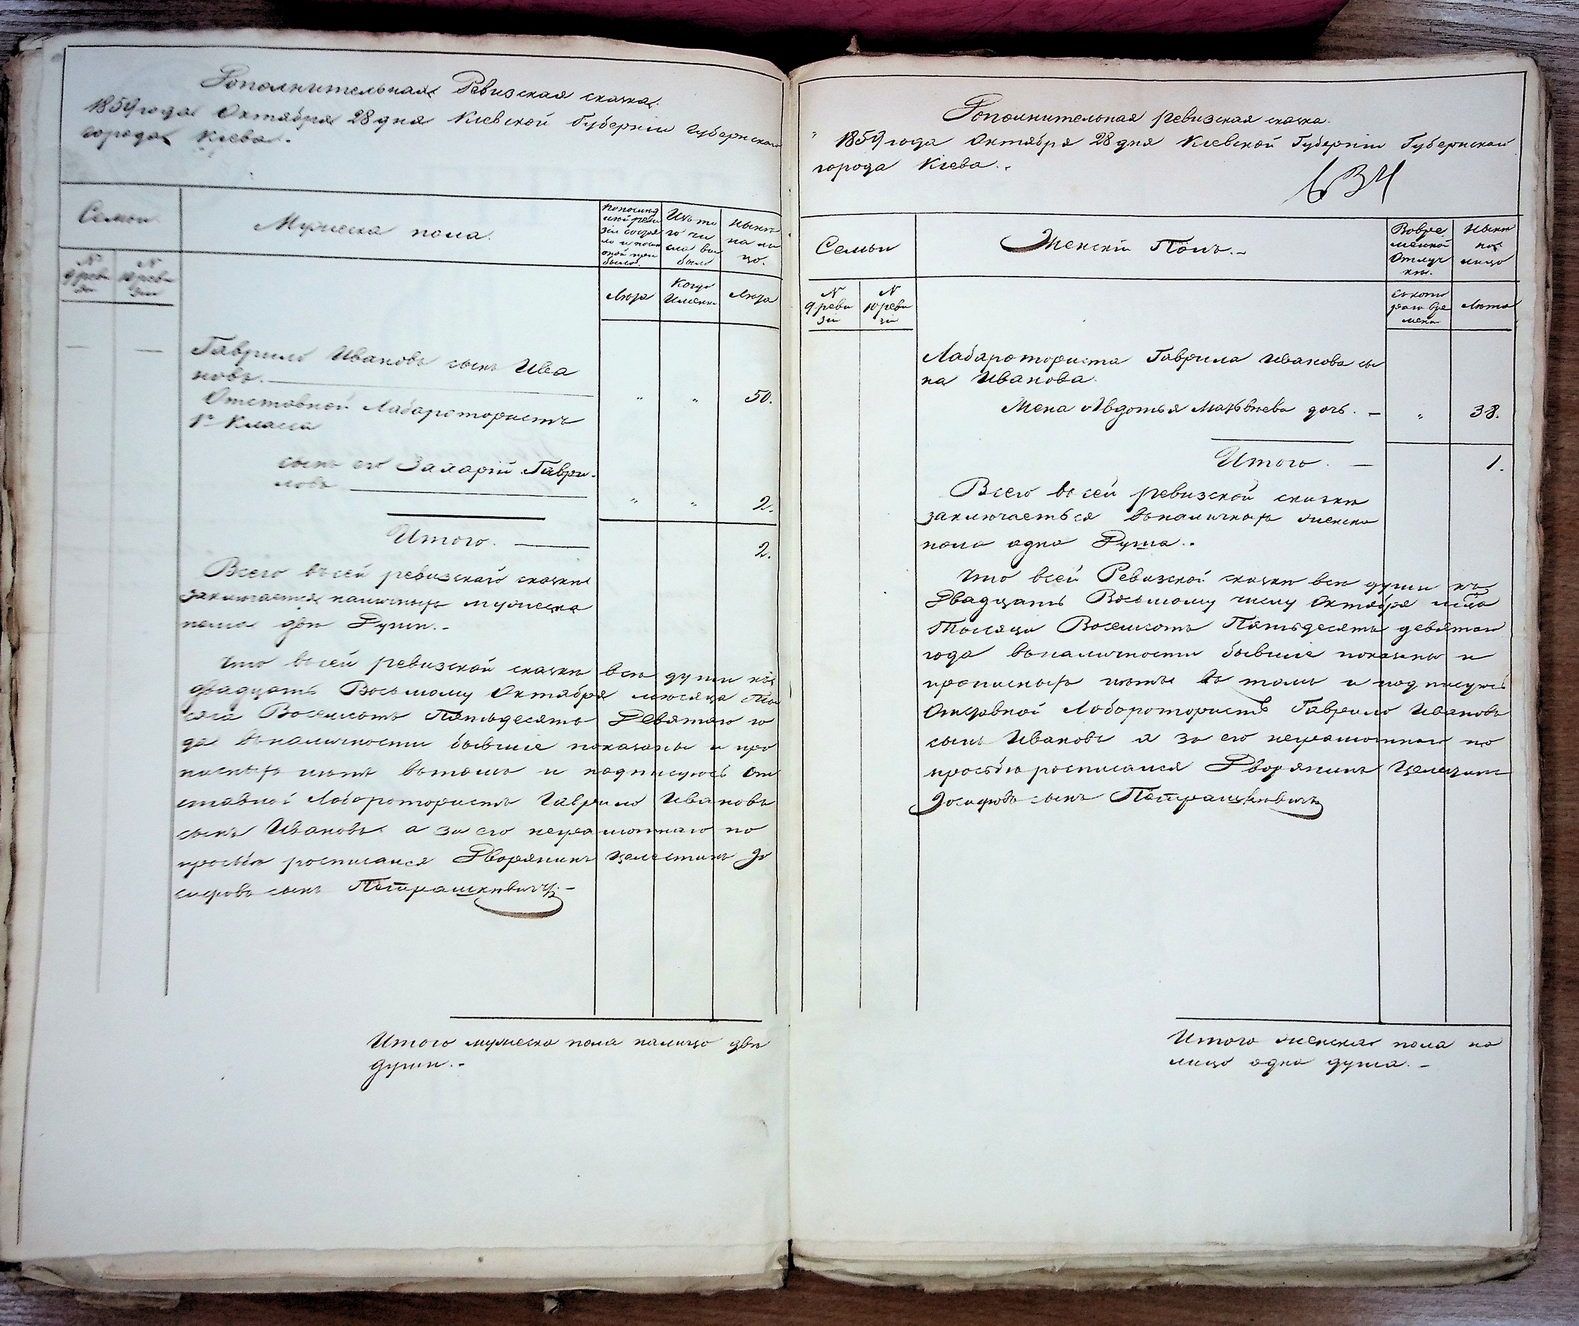 Дополнительная Ревизская сказка.
1859 года Октября 28 дня Кіевской Губерніи Губернскаго
города Кіева.
Семьи
Мужеска пола.
По послѣд
ней реви
зіи состоя
ло и послѣ
оной при
было.
Изъ то
го чи
сла вы
было
Нынѣ
на ли
цо.
№
9 реви
зіи
№
10 реви
зіи
Лѣта
Когда
Именно
Лѣта
Гаврило Ивановъ сынъ Ива
новъ.
50.
Отставной Лабаротористъ
1го Класса
сынъ его Захарій Гаври-
ловъ
2.
Итого.
2.
Всего въ сей ревизскаго сказки
заключается наличныхъ мужеска
пола двѣ Души.
Что въ сей ревизской сказки всѣ души къ
двадцать Восьмому Октября мѣсяца Ты
сяча Восемсотъ Пятьдесятъ Девятаго го
да въ наличности бывшіе показаны и про
писныхъ нѣтъ в томъ и подписуюсь От
ставной Лабаротористъ Гаврило Ивановъ
сынъ Ивановъ а за его неграмотнаго по
просьбѣ росписался Дворянинъ Целестинъ Іо
сифовъ сынъ Петрашкевичъ.
Итого мужеска пола налицо двѣ
души.
Дополнительная ревизская сказка.
1859 года Октября 28 дня Кіевской Губерніи Губернскаго
города Кіева.
634
Семьи
Женскій Полъ.
Во вре
менной
Отлуч
кѣ.
Нынѣ
на
лицо
№
9 реви
зіи
№
10 реви
зіи
съ кото
раго вре
мени
Лѣта
Лабароториста Гаврила Иванова сы
на Иванова.
Жена Авдотья Матвѣева дочь.
38.
Итого.
1.
Всего въ сей ревизской сказки
заключаеться въ наличныхъ женска
пола одна Душа.
Что всей Ревизской сказки всѣ души къ
Двадцать Восьмому числу Октября мсца
Тысяча Восемсотъ Пятьдесятъ девятаго
года въ наличности бывшіе показаны и
прописныхъ нѣтъ въ томъ и подписуюсь
Отставной Лабаротористъ Гаврило Ивановъ
сынъ Ивановъ а за его неграмотнаго по
просьбѣ росписался Дворянинъ Целестинъ
Іосифовъ сынъ Петрашкевичъ
Итого женска пола на
лицо одна душа.